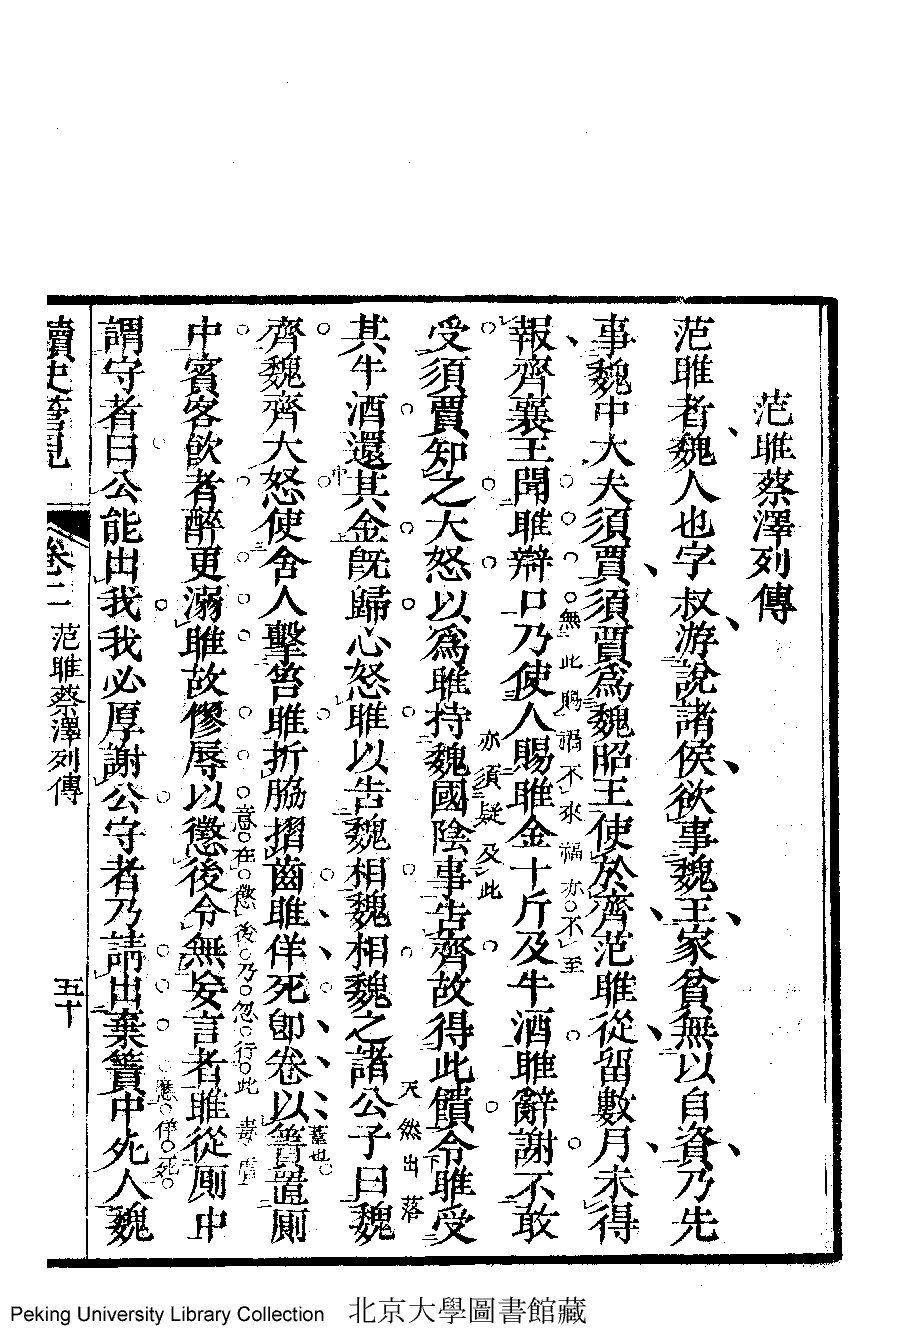 范雎蔡澤列傳
范雎者魏人也字叔游說諸侯欲事魏王家貧無以自資乃先
事魏中大夫須賈須賈爲魏昭王使於齊范雎從留數月未得
無此賜禍不來福亦不至
報齊襄王聞雎辯口乃使人賜雎金十斤及牛酒雎辭謝不敢
亦須疑及此
受須賈知之大怒以爲雎持魏國陰事告齊故得此饋令雎受
天然出落
其牛酒還其金旣歸心怒雎以告魏相魏相魏之諸公子曰魏
齊魏齊大怒使舍人擊笞雎折脇摺齒雎佯死卽卷以簀置厠
意在懲後乃忽行此毒虐
中賓客飲者醉更溺雎故僇辱以懲後令無妄言者雎從厠中
應佯死
謂守者曰公能出我我必厚謝公守者乃請出棄簀中死人魏
讀史管見
卷二
范雎蔡澤列傳
五十
Peking University Library Collection 北京大學圖書館藏